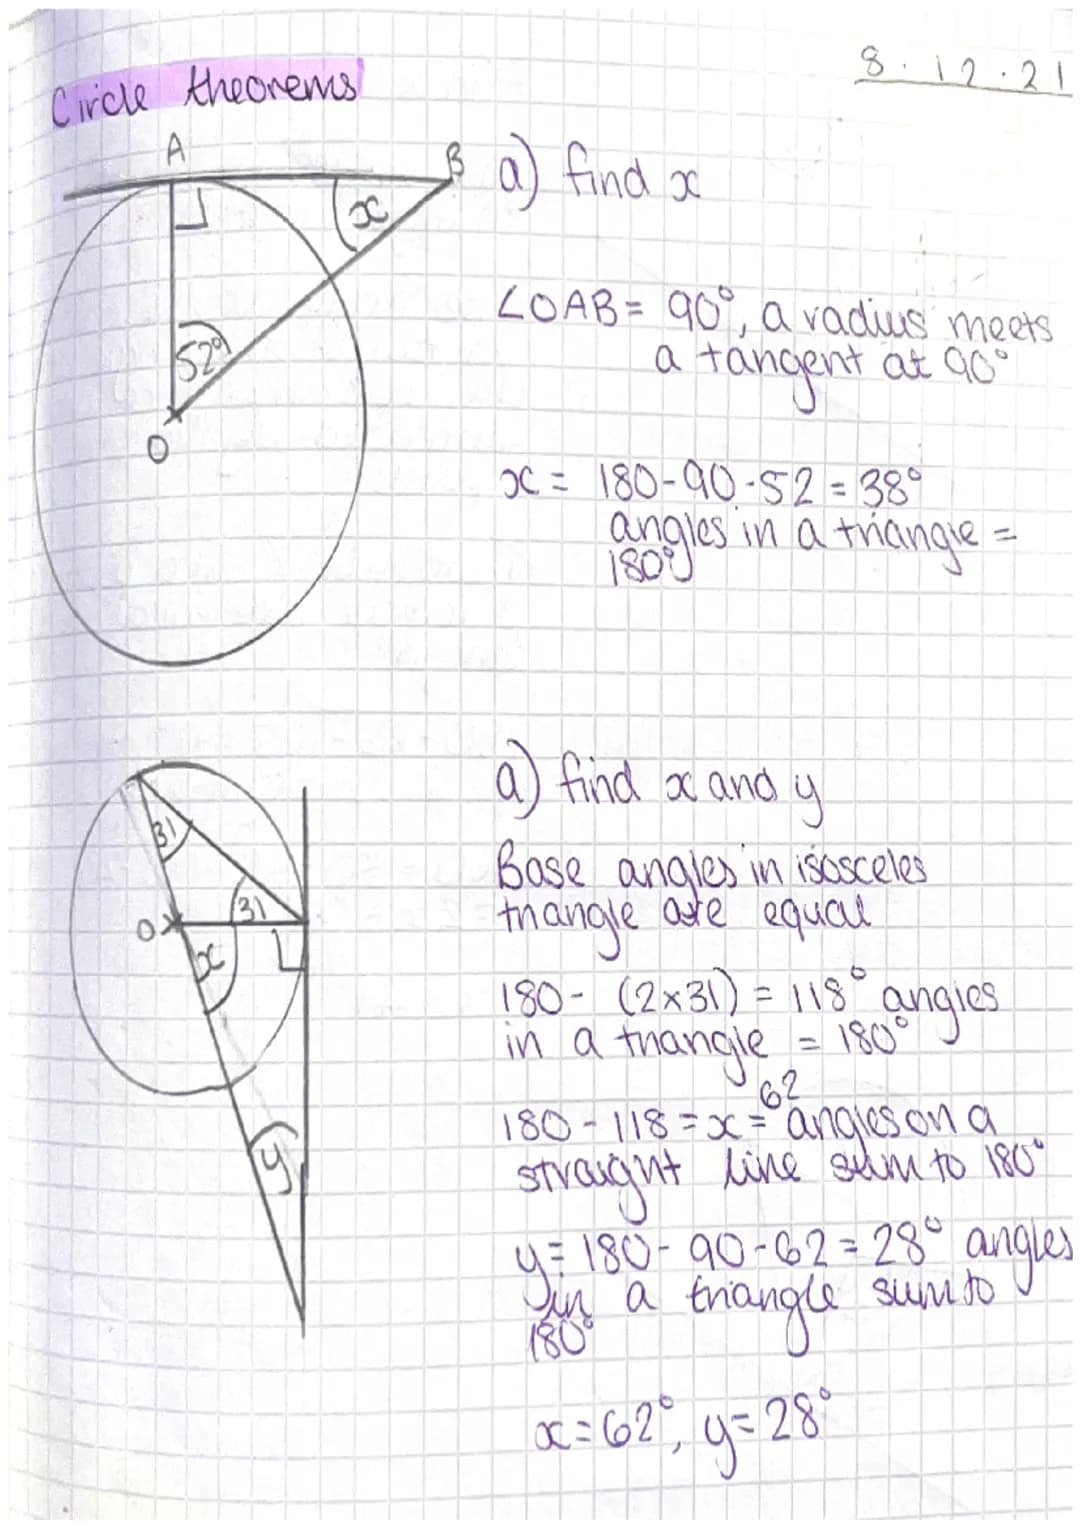 8.12.21
Circle theorems
A
B
x
52°
O
a) find x
∠OAB = 90°, a radius meets
a tangent at 90°
x = 180-90-52 = 38°
angles in a triangle =
180°
31
31
O
x
y
a) find x and y
Base angles in isosceles
triangle are equal
180 - (2×31) = 118° angles
in a triangle = 180°
62
180 - 118 = x = angles on a
straight line sum to 180°
y = 180 - 90 - 62 = 28° angles
in a triangle sum to
180°
x = 62°, y = 28°